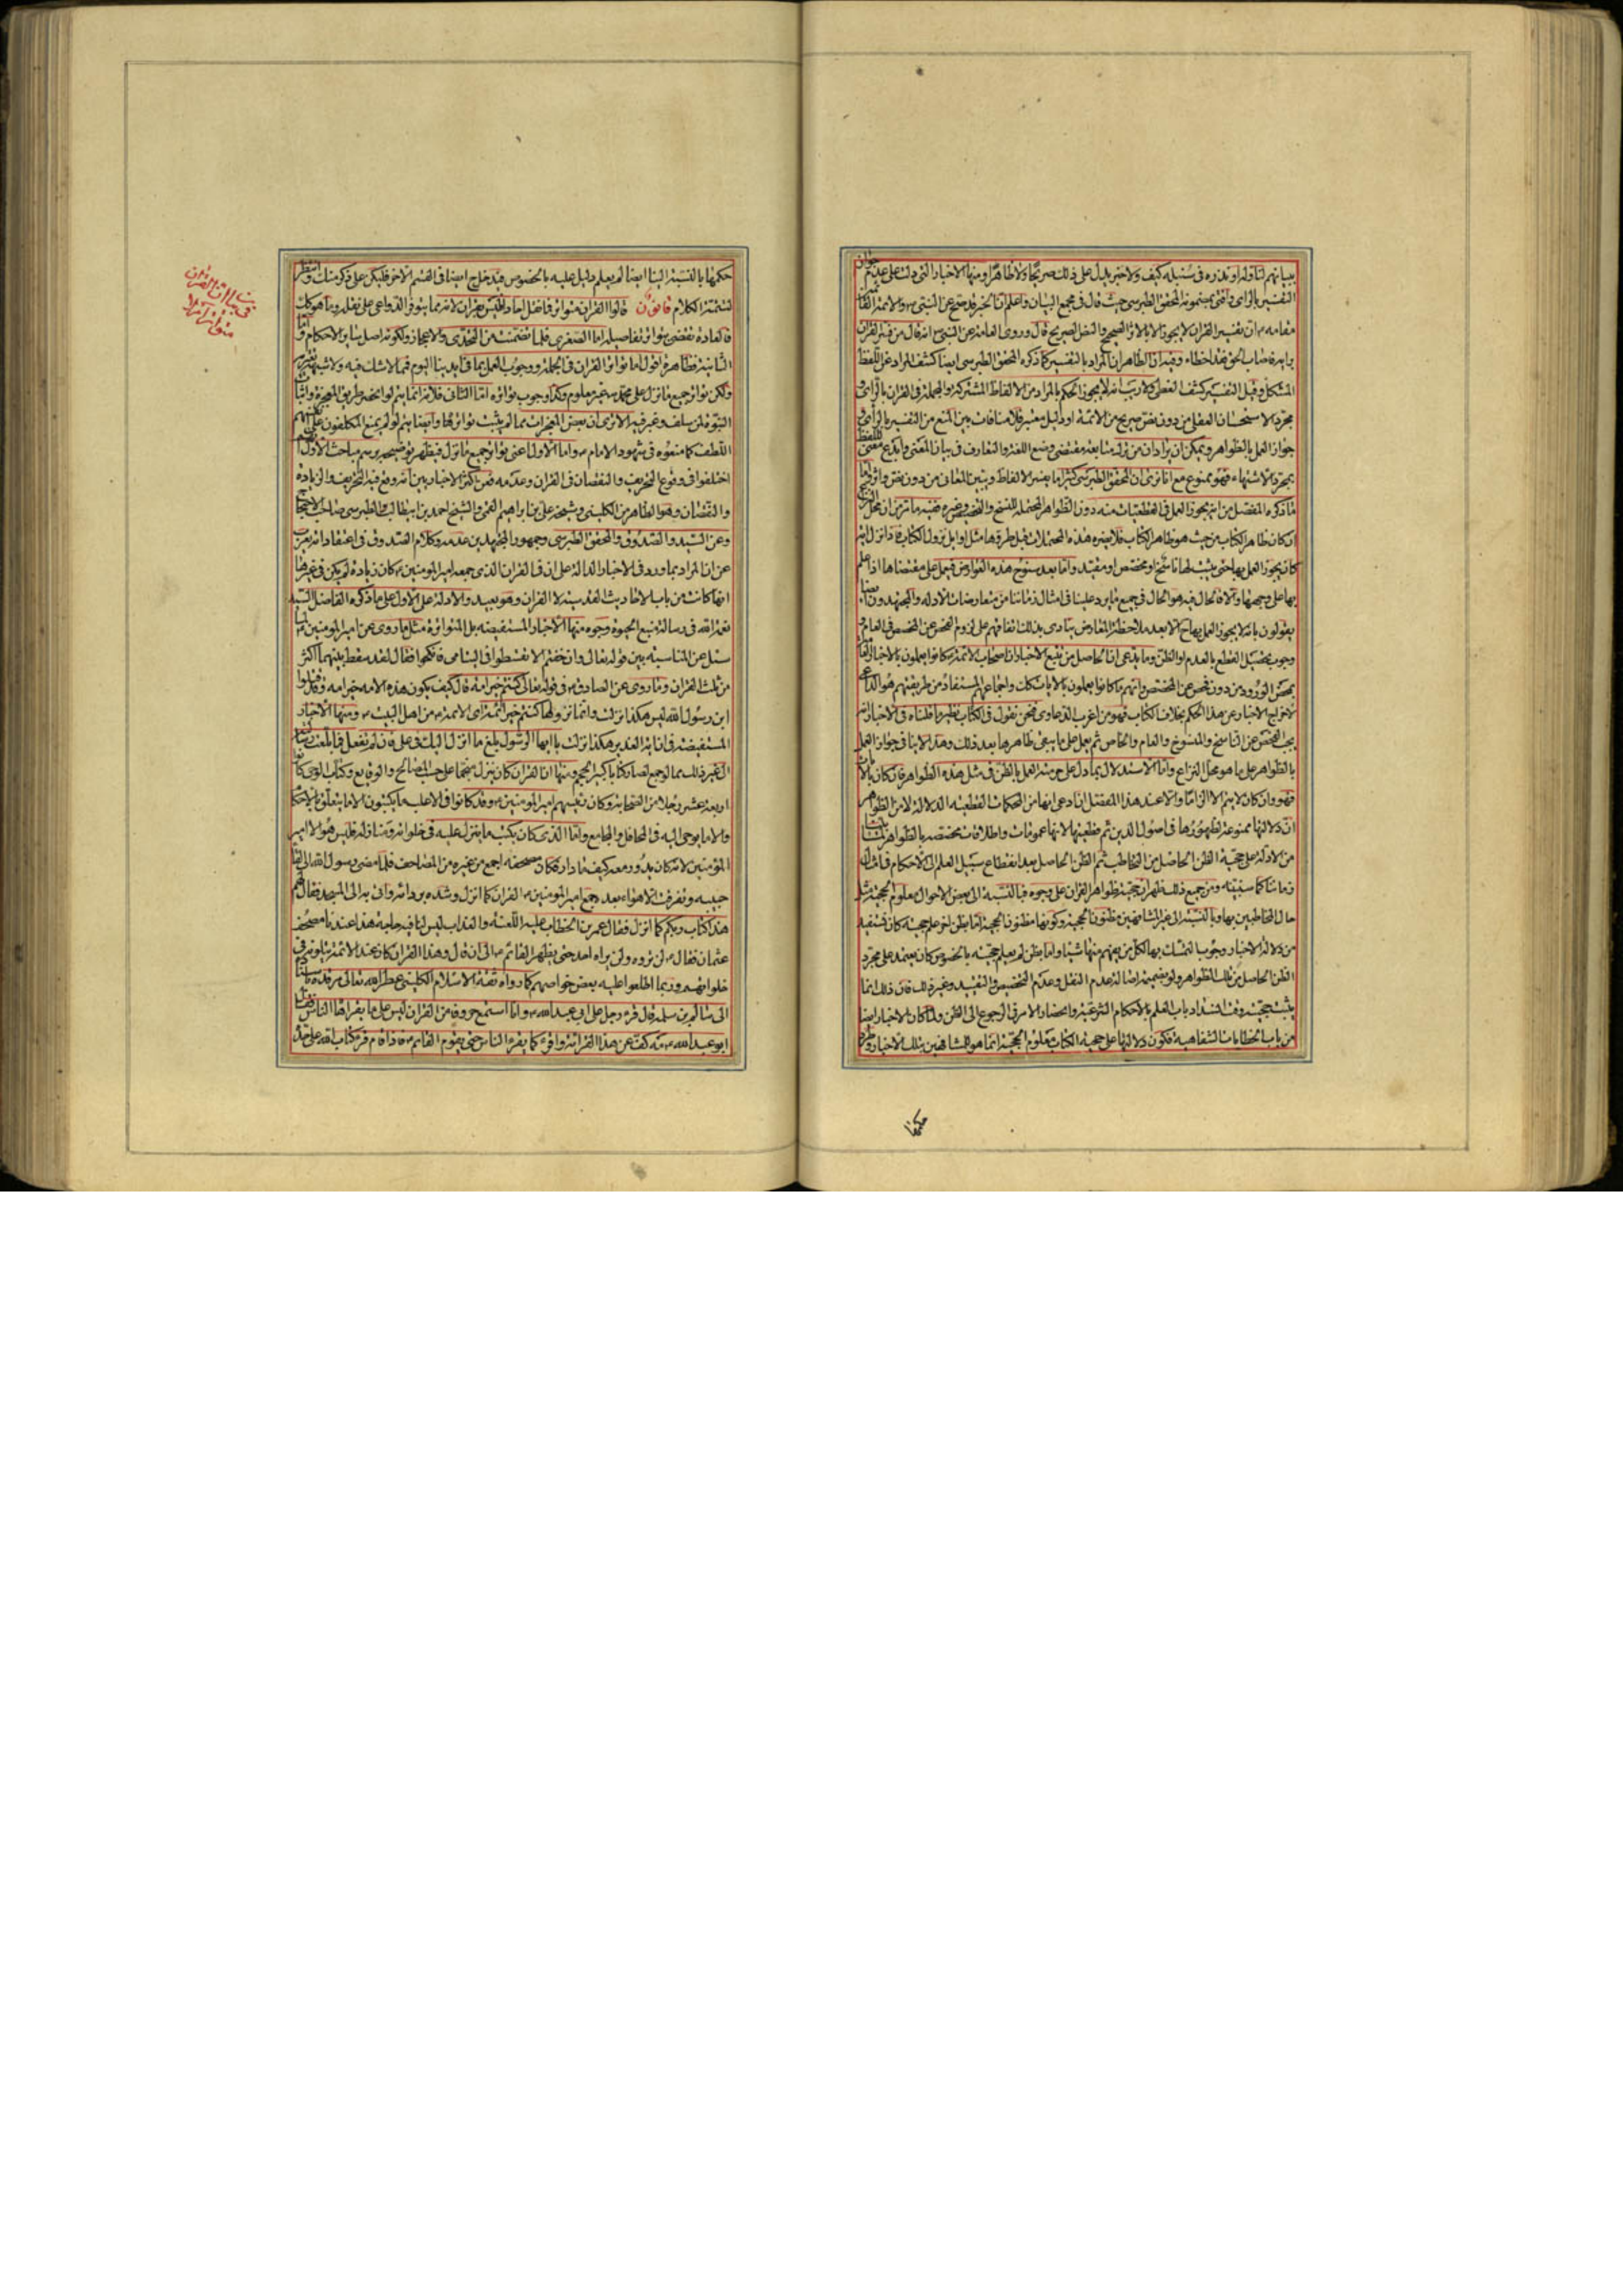 التفسير بالرأى المحقق الطبرسى حيث قال فى مجمع البيان واعلم ان الخبر قد صح عن النبى والائمة
مقامه ان تفسير القران لا يجوز الا بالاثر الصحيح والنص الصريح قال وروى العامة عن النبى انه قال من فسر القران
برايه فاصاب الحق فقد اخطاء وفيه ان الظاهر ان المراد بالتفسير كما ذكره المحقق الطبرسى ايضا كشف المراد عن اللفظ
المشكل وقيل التفسير كشف المغطى ولا ريب انه لا يجوز الحكم بالمراد من الالفاظ المشتركة والمجملة فى القران بالراى و
مجرد الاستحسان العقلى من دون نص صريح من الائمة او دليل معتبر فلا منافات بين المنع من التفسير بالراى و
جواز العمل بالظواهر ويمكن ان يراد ان من ترك متابعة مقتضى وضع اللغة والتعارف فى بيان المعنى
بمجرد الاشتهاء فهو ممنوع مع انا نرى ان المحقق الطبرسى كثيرا ما يفسر الالفاظ ويبين المعانى من دون نص واثر
ما ذكره المفصل من انه يجوز العمل فى القطعيات منه دون الظواهر المحتملة للنسخ والتخصيص وغيره ففيه ما مر من ان
ان كان ظاهر الكتاب من حيث هو ظاهر الكتاب فلا يضره هذه المحتملات قبل طروها مثل اوايل نزول الكتاب
كان يجوز العمل بها حتى يثبت لها ناسخ او مخصص او مقيد واما بعد سنوح هذه العوارض فيعمل على مقتضاها اذا علم
بها على وجهها والا فالحال فيه هو الحال فى جميع ما يرد علينا فى امثال زماننا من متعارضات الادله والمجتهدون
يقولون بانه لا يجوز العمل بها ح الا بعد ملاحظة المعارض ينادى بذلك اتفاقهم على لزوم الفحص عن المخصص فى العام
وجوب تحصيل القطع بالعدم او الظن وما يدعى ان الحاصل من تتبع الاخبار ان اصحاب الائمة كانوا يعملون بالاخبار
بمحض الورود من دون فحص عن المخصص وانهم ما كانوا يعملون بالايات
لاخراج الاخبار عن هذا الحكم بخلاف الكتاب فهو من اغرب الدعاوى فنحن نقول فى الكتاب نظير ما قلناه فى الاخبار
يجب الفحص عن الناسخ والمنسوخ والعام والخاص ثم يعمل على ما يبقى ظاهرها بعد ذلك وهذا لا ينافى جواز العمل
بالظواهر على ما هو محل النزاع واما الاستدلال بما دل على حرمة العمل بالظن فى مثل هذه الظواهر فان كان
فهو وان كان لا يتم الا الزاما والا عند هذا المفصل ان ادعى انها من المحكمات القطعية الدلالة لا من الظواهر
ان دلالتها ممنوعة لظهورها فى اصول الدين ثم قطعيتها لانها عمومات واطلاقات مخصصه بالظواهر
من الادلة على حجية الظن الحاصل من التخاطب ثم الظن الحاصل بعد انقطاع سبيل العلم الى الاحكام فى امثال
زماننا كما سنبينه ومن جميع ذلك ظهر ان حجية ظواهر القران على وجوه فبالنسبة الى بعض الاحوال معلوم الحجية مثل
حال المخاطبين بها وبالنسبة الى غير المشافهين مظنون الحجية وكونها مظنون الحجية اما بظن اخر علم حجيته كان نستفيد
من دلالة الاخبار وجوب التمسك بها لكل من يفهم منها شيئا واما بظن لم يعلم حجيته بالخصوص كان يعتمد على مجرد
الظن الحاصل من تلك الظواهر ولو بضميمة اصالة عدم النقل وعدم التخصيص والتقييد وغير ذلك فان ذلك انما
يثبت حجيته وقت انسداد باب العلم بالاحكام الشرعية وانحصار الامر فى الرجوع الى الظن ولما كان الاخبار ايضا
من باب الخطابات الشفاهية فكون دلالتها على حجية الكتاب معلوم الحجية انما هو للمشافهين بتلك الاخبار
حكمها بالنسبة الينا ايضا لم يعلم دليل عليه بالخصوص فيدخل ح ايضا فى القسم الاخر فليكن على ذكر منك وانتظر
لتتمة الكلام قانون قالوا القران متواتر فما نقل احادا فليس بقران لانه مما يتوفر الدواعى على نقله وما هو كك
فالعادة تقضى بتواتر تفاصيله اما الصغرى فلما تضمنت من التحدى والاعجاز ولكونه اصل ساير الاحكام واما
الثانية فظاهرة اقول اما تواتر القران فى الجملة ووجوب العمل بما فى ايدينا اليوم فمما لا شك فيه ولا شبهة تعتريه
ولكن تواتر جميع ما نزل على محمد غير معلوم وكذا وجوب تواتره اما الثانى فلانه انما يتم لو انحصر طريق المعجزة واثبات
النبوة لمن سلف وغبر فيه الا ترى ان بعض المعجزات مما لم يثبت تواترها وايضا يتم لو لم يمنع المكلفون على انفسهم
اللطف كما منعوه فى شهود الامام واما الاول اعنى تواتر جميع ما نزل فيظهر توضيحه برسم مباحث الاول
اختلفوا فى وقوع التحريف والنقصان فى القران وعدمه فعن اكثر الاخباريين انه وقع فيه التحريف والزيادة
والنقصان وهو الظاهر من الكلينى وشيخه على بن ابراهيم القمى والشيخ احمد بن ابيطالب الطبرسى صاحب الاحتجاج
وعن السيد والصدوق والمحقق الطبرسى وجمهور المجتهدين عدمه وكلام الصدوق فى اعتقاداته يعرب
عن ان المراد بما ورد فى الاخبار الدالة على ان فى القران الذى جمعه امير المؤمنين كان زيادة لم يكن فى غيرها
انها كانت من باب الاحاديث القدسية لا القران وهو بعيد والادلة على الاول على ما ذكره الفاضل السيد
نعمة الله فى رسالة منبع الحيوة وجوه منها الاخبار المستفيضه بل المتواترة مثل ما روى عن امير المؤمنين لما
سئل عن المناسبة بين قوله تعالى وان خفتم الا تقسطوا فى اليتامى فانكحوا فقال لقد سقط بينهما اكثر
من ثلث القران وما روى عن الصادق فى قوله تعالى كنتم خير امة قال كيف يكون هذه الامه خير امه وقد قتلوا
ابن رسول الله ليس هكذا نزلت وانما نزولها كنتم خير ائمة اى الائمة من اهل البيت ومنها الاخبار
المستفيضة فى ان اية الغدير هكذا نزلت يا ايها الرسول بلغ ما انزل اليك فى على فان لم تفعل فما بلغت رسالته
الى غير ذلك مما لو جمع لصار كتابا كبير الحجم ومنها ان القران كان ينزل منجما على حسب المصالح والوقايع وكتاب الوحى كانوا
اربعة عشر رجلا من الصحابة وكان رئيسهم امير المؤمنين وقد كانوا فى الاغلب ما يكتبون الا ما يتعلق بالاحكام
والا ما يوحى اليه فى المحافل والمجامع واما الذى كان يكتب ما ينزل عليه فى خلواته ومنازله فليس هو الا امير
المؤمنين لانه كان يدور معه كيف ما دار فكان مصحفه اجمع من غيره من المصاحف فلما مضى رسول الله الى لقاء
حبيبه وتفرقت الاهواء بعده جمع امير المؤمنين القران كما انزل وشده بردائه واتى به الى المسجد فقال لهم
هذا كتاب ربكم كما انزل فقال عمر بن الخطاب عليه اللعنه والعذاب ليس لنا فيه حاجة هذا عندنا مصحف
عثمان فقال لن تروه ولن يراه احد حتى يظهر القائم الى ان قال وهذا القران كان عند الائمة يتلونه فى
خلواتهم وربما اطلعوا عليه بعض خواصهم كما رواه ثقة الاسلام الكلينى عطر الله تعالى مرقده باسناده
الى سالم بن سلمة قال قرء رجل على ابى عبد الله وانا استمع حروفا من القران ليس على ما يقراها الناس فقال
ابو عبد الله مه كف عن هذا القرائة واقرء كما يقرء الناس حتى يقوم القائم فاذا قام قرء كتاب الله على حده
حكمها